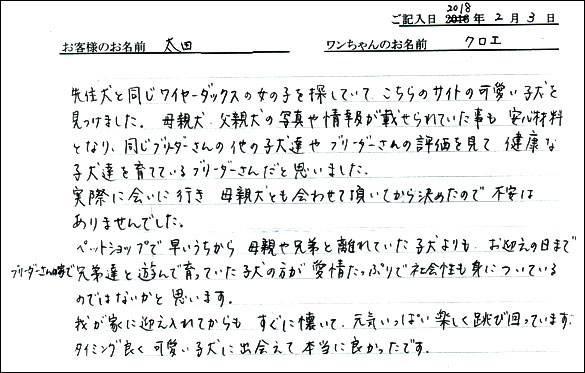 ご記入日 2018年 2月 3日
お客様のお名前 太田 ワンちゃんのお名前 クロエ
先住犬と同じワイヤーダックスの女の子を探していて、こちらのサイトの可愛い子犬を
見つけました。母親犬・父親犬の写真や情報が載せられていた事も 安心材料
となり、同じブリーダーさんの他の子犬達やブリーダーさんの評価を見て 健康な
子犬達を育てているブリーダーさんだと思いました。
実際に会いに行き 母親犬とも会わせて頂いてから決めたので 不安は
ありませんでした。
ペットショップで早いうちから 母親や兄弟と離れていた子犬よりも、お迎えの日まで
ブリーダーさんの時で兄弟達と遊んで育っていた子犬の方が 愛情たっぷりで社会性も身についている
のではないかと思います。
我が家に迎え入れてからも すぐに懐いて、元気いっぱい 楽しく跳び回っています。
タイミング良く可愛い子犬に出会えて本当に良かったです。